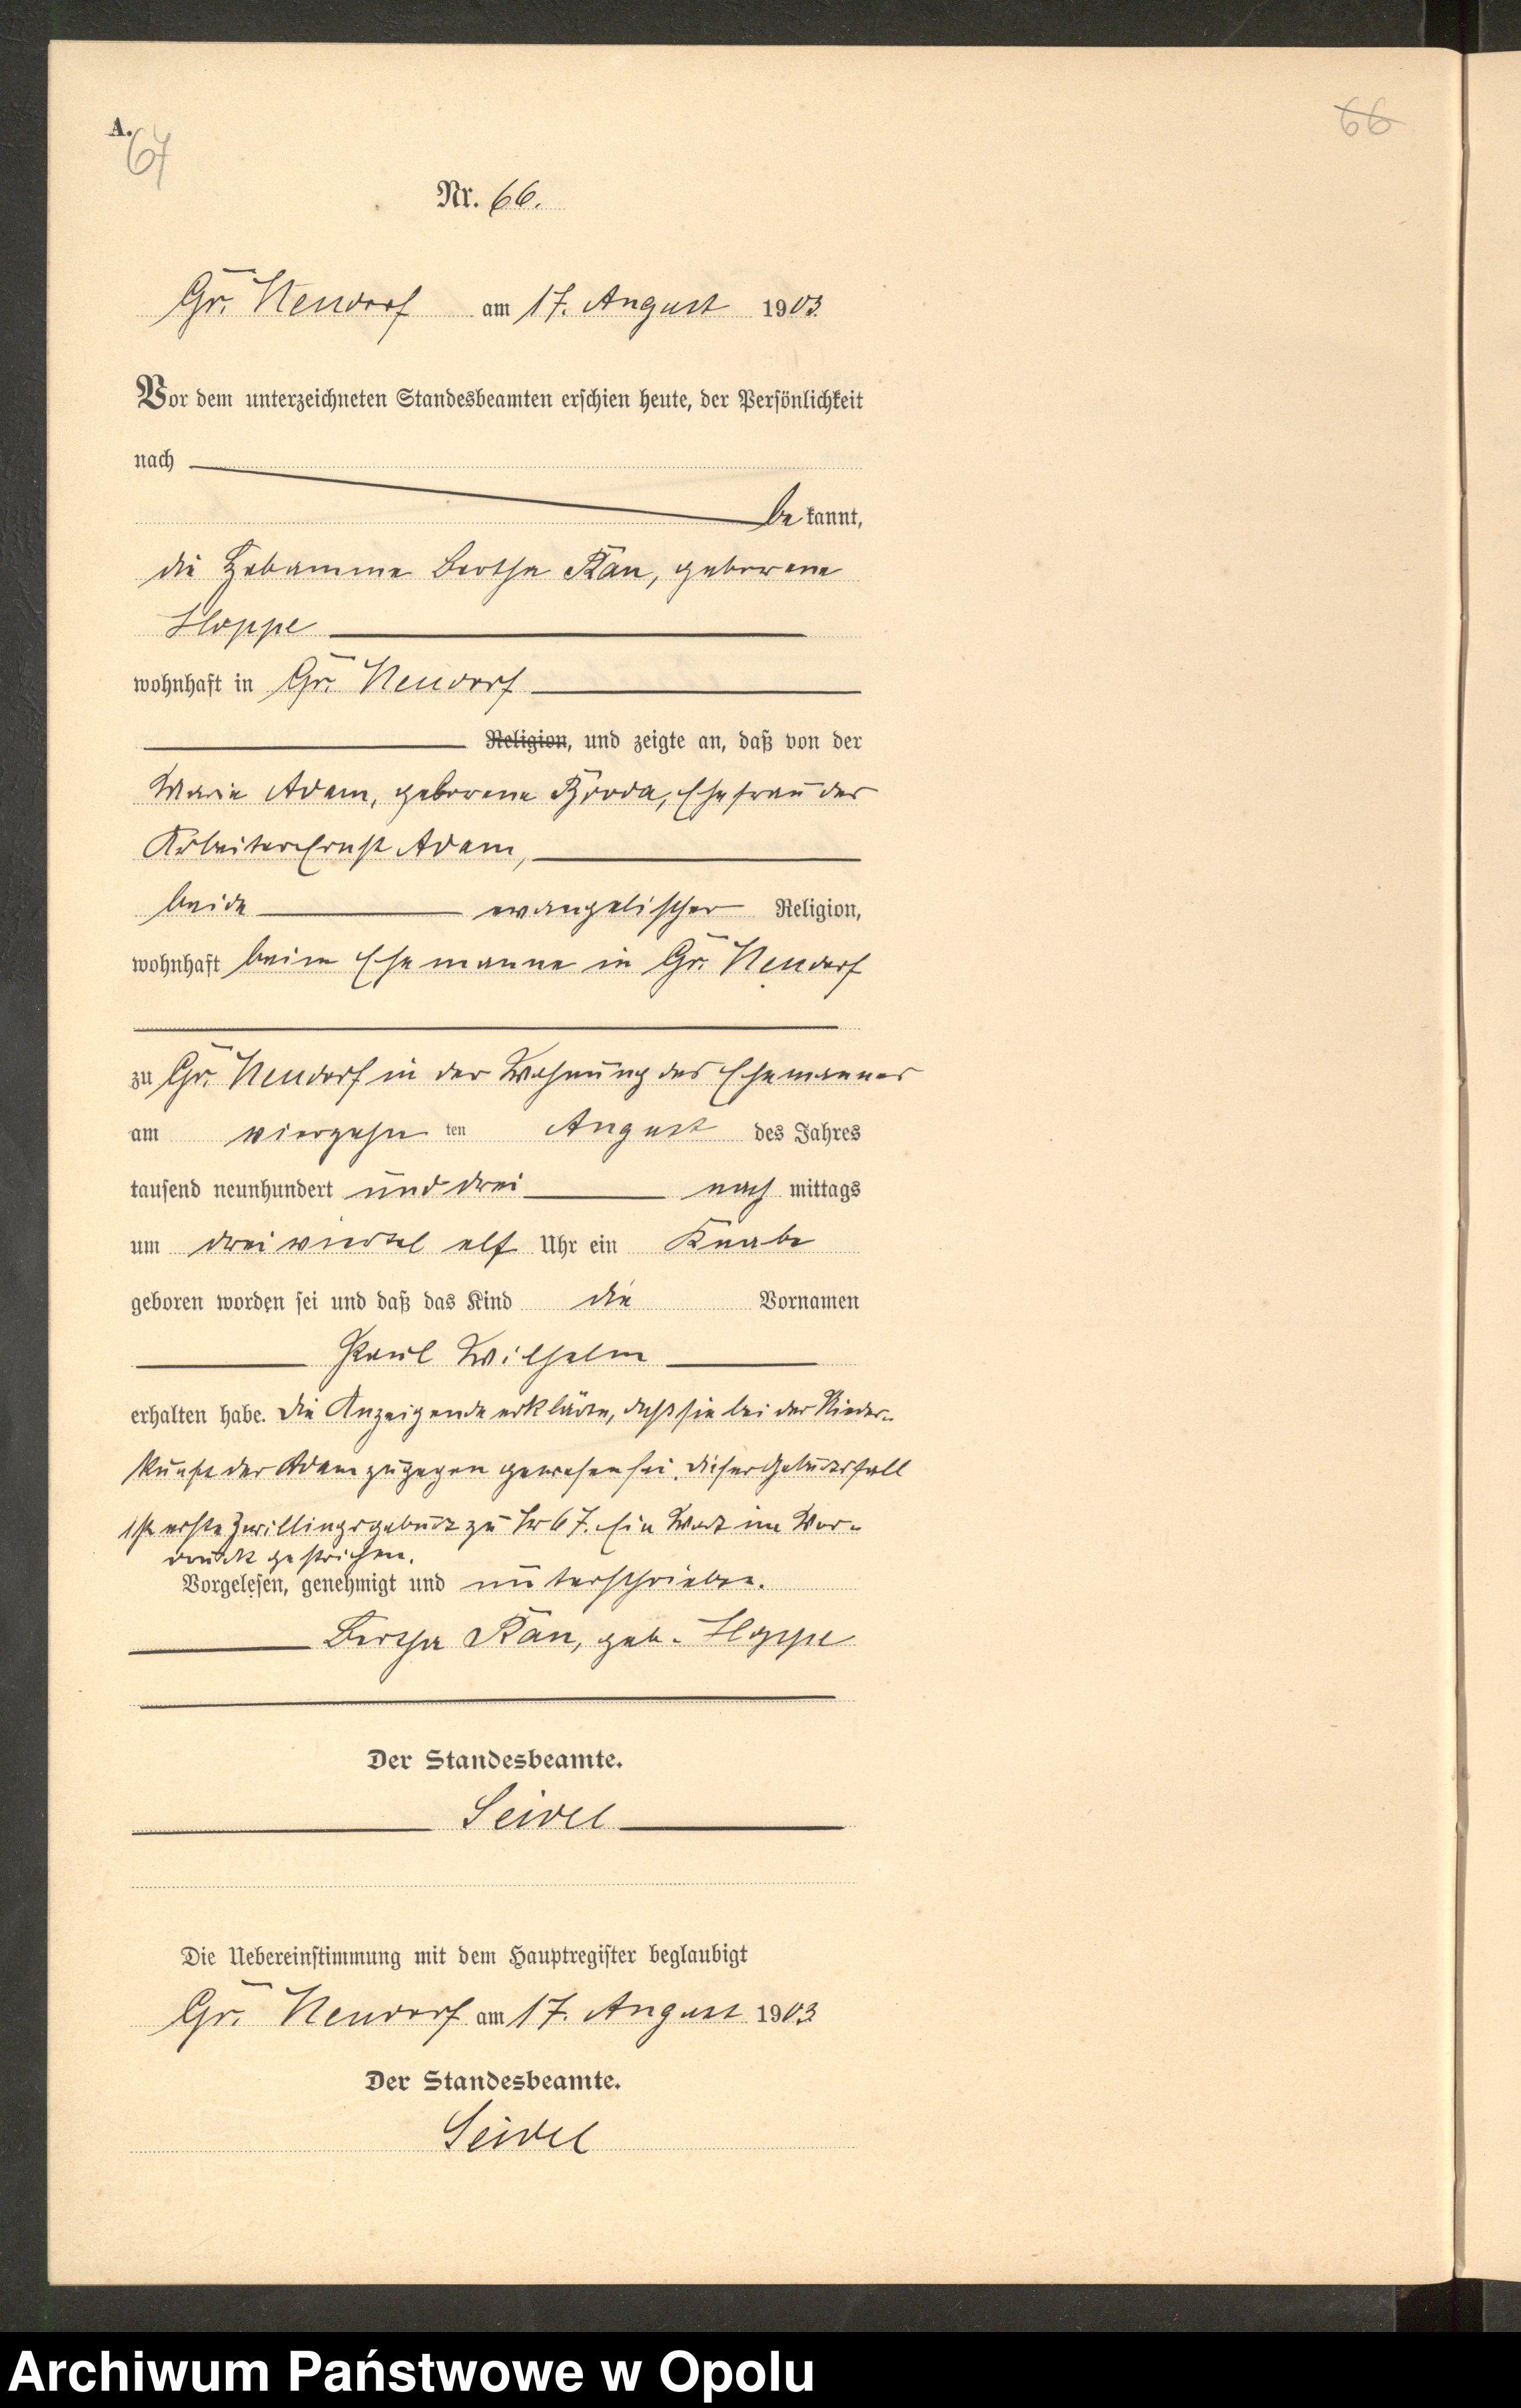 A.
67
66
Nr. 66.
Gr. Neudorf am 17. August 1903
Vor dem unterzeichneten Standesbeamten erschien heute, der Persönlichkeit
nach
be kannt,
die Hebamme Bertha Rau, geborene
Hoppe
wohnhaft in Gr. Neudorf
Religion, und zeigte an, daß von der
Marie Adam, geborene Broda, Ehefrau des
Arbeiter Ernst Adam,
beide evangelischer Religion,
wohnhaft beim Ehemanne in Gr. Neudorf
zu Gr. Neudorf in der Wohnung des Ehemannes
am vierzehn ten August des Jahres
tausend neunhundert und drei nach mittags
um drei viertel elf Uhr ein Knabe
geboren worden sei und daß das Kind die Vornamen
Paul Wilhelm
erhalten habe. Die Anzeigende erklärte, daß sie bei der Nieder-
kunft der Adam zugegen gewesen sei. Dieser Geburtsfall
ist erste Zwillingsgeburt zu Nr 67. Ein Wort im Vor-
druck gestrichen.
Vorgelesen, genehmigt und unterschrieben.
Bertha Rau, geb. Hoppe
Der Standesbeamte.
Seidel
Die Uebereinstimmung mit dem Hauptregister beglaubigt
Gr. Neudorf am 17. August 1903
Der Standesbeamte.
Seidel
Archiwum Państwowe w Opolu